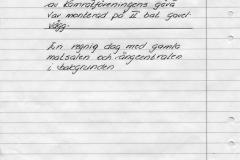 av Kamratföreningens gåva
Var monterad på II bat gavel
vägg.
En regnig dag med gamla
matsalen och rångcentralen
i bakgrunden